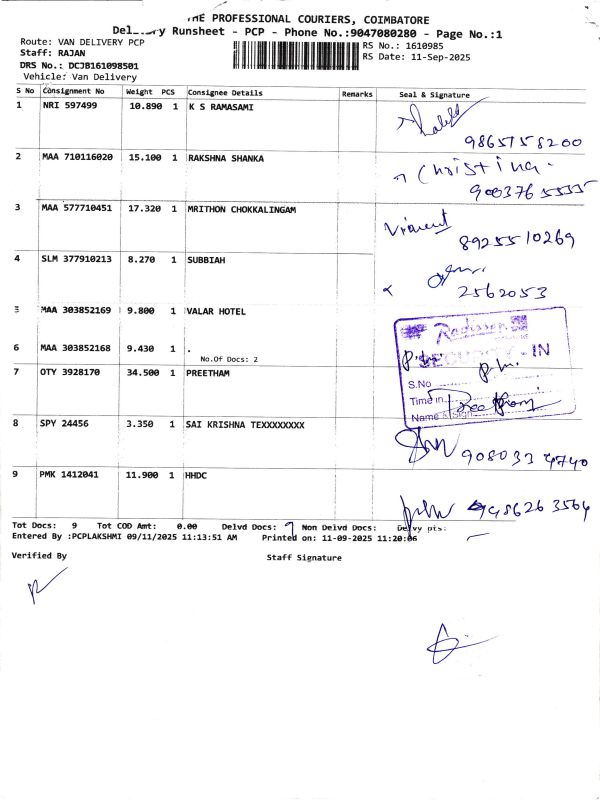 THE PROFESSIONAL COURIERS, COIMBATORE
Delivery Runsheet - PCP - Phone No.:9047080280 - Page No.:1
Route: VAN DELIVERY PCP
RS No.: 1610985
Staff: RAJAN
RS Date: 11-Sep-2025
DRS No.: DCJB161098501
Vehicle: Van Delivery
S No Consignment No Weight PCS Consignee Details Remarks Seal & Signature
1 NRI 597499 10.890 1 K S RAMASAMI
9865758200
2 MAA 710116020 15.100 1 RAKSHNA SHANKA
Christina.
9003765555
3 MAA 577710451 17.320 1 MRITHON CHOKKALINGAM
Vincent
8925510269
4 SLM 377910213 8.270 1 SUBBIAH
2562053
5 MAA 303852169 9.800 1 VALAR HOTEL
Radisson
6 MAA 303852168 9.430 1 .
SECURITY - IN
No.Of Docs: 2
7 OTY 3928170 34.500 1 PREETHAM
S.No
Time in
Name & Sign
8 SPY 24456 3.350 1 SAI KRISHNA TEXXXXXXXX
908033 4740
9 PMK 1412041 11.900 1 HHDC
9486263564
Tot Docs: 9 Tot COD Amt: 0.00 Delvd Docs: 9 Non Delvd Docs: Delvy pts:
Entered By :PCPLAKSHMI 09/11/2025 11:13:51 AM Printed on: 11-09-2025 11:20:06
Verified By Staff Signature